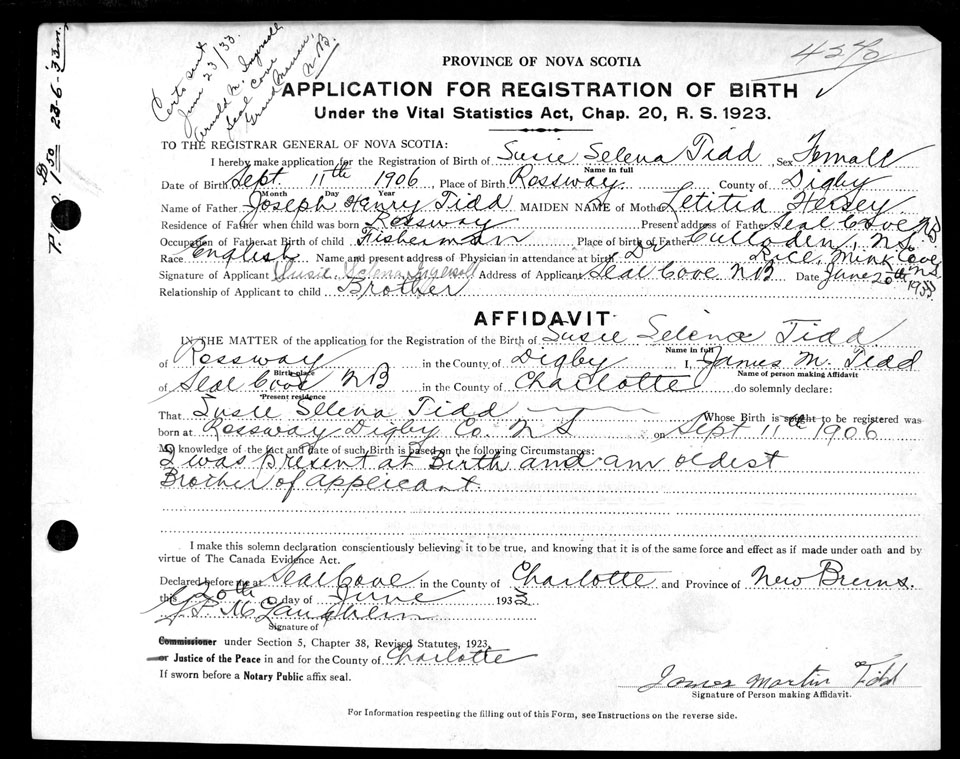 4270
Certs sent
June 23/33
Arnold M. Ingersoll
Seal Cove
Grand Manan,
N.B.
P. 1 50 23-6-33
PROVINCE OF NOVA SCOTIA
APPLICATION FOR REGISTRATION OF BIRTH
Under the Vital Statistics Act, Chap. 20, R. S. 1923.
TO THE REGISTRAR GENERAL OF NOVA SCOTIA:
I hereby make application for the Registration of Birth of Susie Selena Tidd Sex Female
Name in full
Date of Birth Sept. 11th 1906 Place of Birth Rossway County of Digby
Month Day Year
Name of Father Joseph Henry Tidd MAIDEN NAME of Mother Letitia Hersey
Residence of Father when child was born Rossway Present address of Father Seal Cove NB
Occupation of Father at Birth of child Fisherman Place of birth of Father Culloden, N.S.
Race English Name and present address of Physician in attendance at birth Dr Rice Mink Cove NS
Signature of Applicant Susie Selena Ingersoll Address of Applicant Seal Cove NB Date June 20th 1933
Relationship of Applicant to child Brother
AFFIDAVIT
IN THE MATTER of the application for the Registration of the Birth of Susie Selena Tidd
Name in full
of Rossway in the County of Digby I, James M. Tidd
Birth place Name of person making Affidavit
of Seal Cove NB in the County of Charlotte do solemnly declare:
Present residence
That Susie Selena Tidd Whose Birth is sought to be registered was
born at Rossway Digby Co. N S on Sept 11th 1906
My knowledge of the fact and date of such Birth is based on the following Circumstances:
I was present at Birth and am oldest
Brother of applicant.
I make this solemn declaration conscientiously believing it to be true, and knowing that it is of the same force and effect as if made under oath and by
virtue of The Canada Evidence Act.
Declared before me at Seal Cove in the County of Charlotte and Province of New Bruns.
this 20th day of June 1933
McLaughlin
Signature of
Commissioner under Section 5, Chapter 38, Revised Statutes, 1923,
or Justice of the Peace in and for the County of Charlotte
If sworn before a Notary Public affix seal.
James Martin Tidd
Signature of Person making Affidavit.
For Information respecting the filling out of this Form, see Instructions on the reverse side.